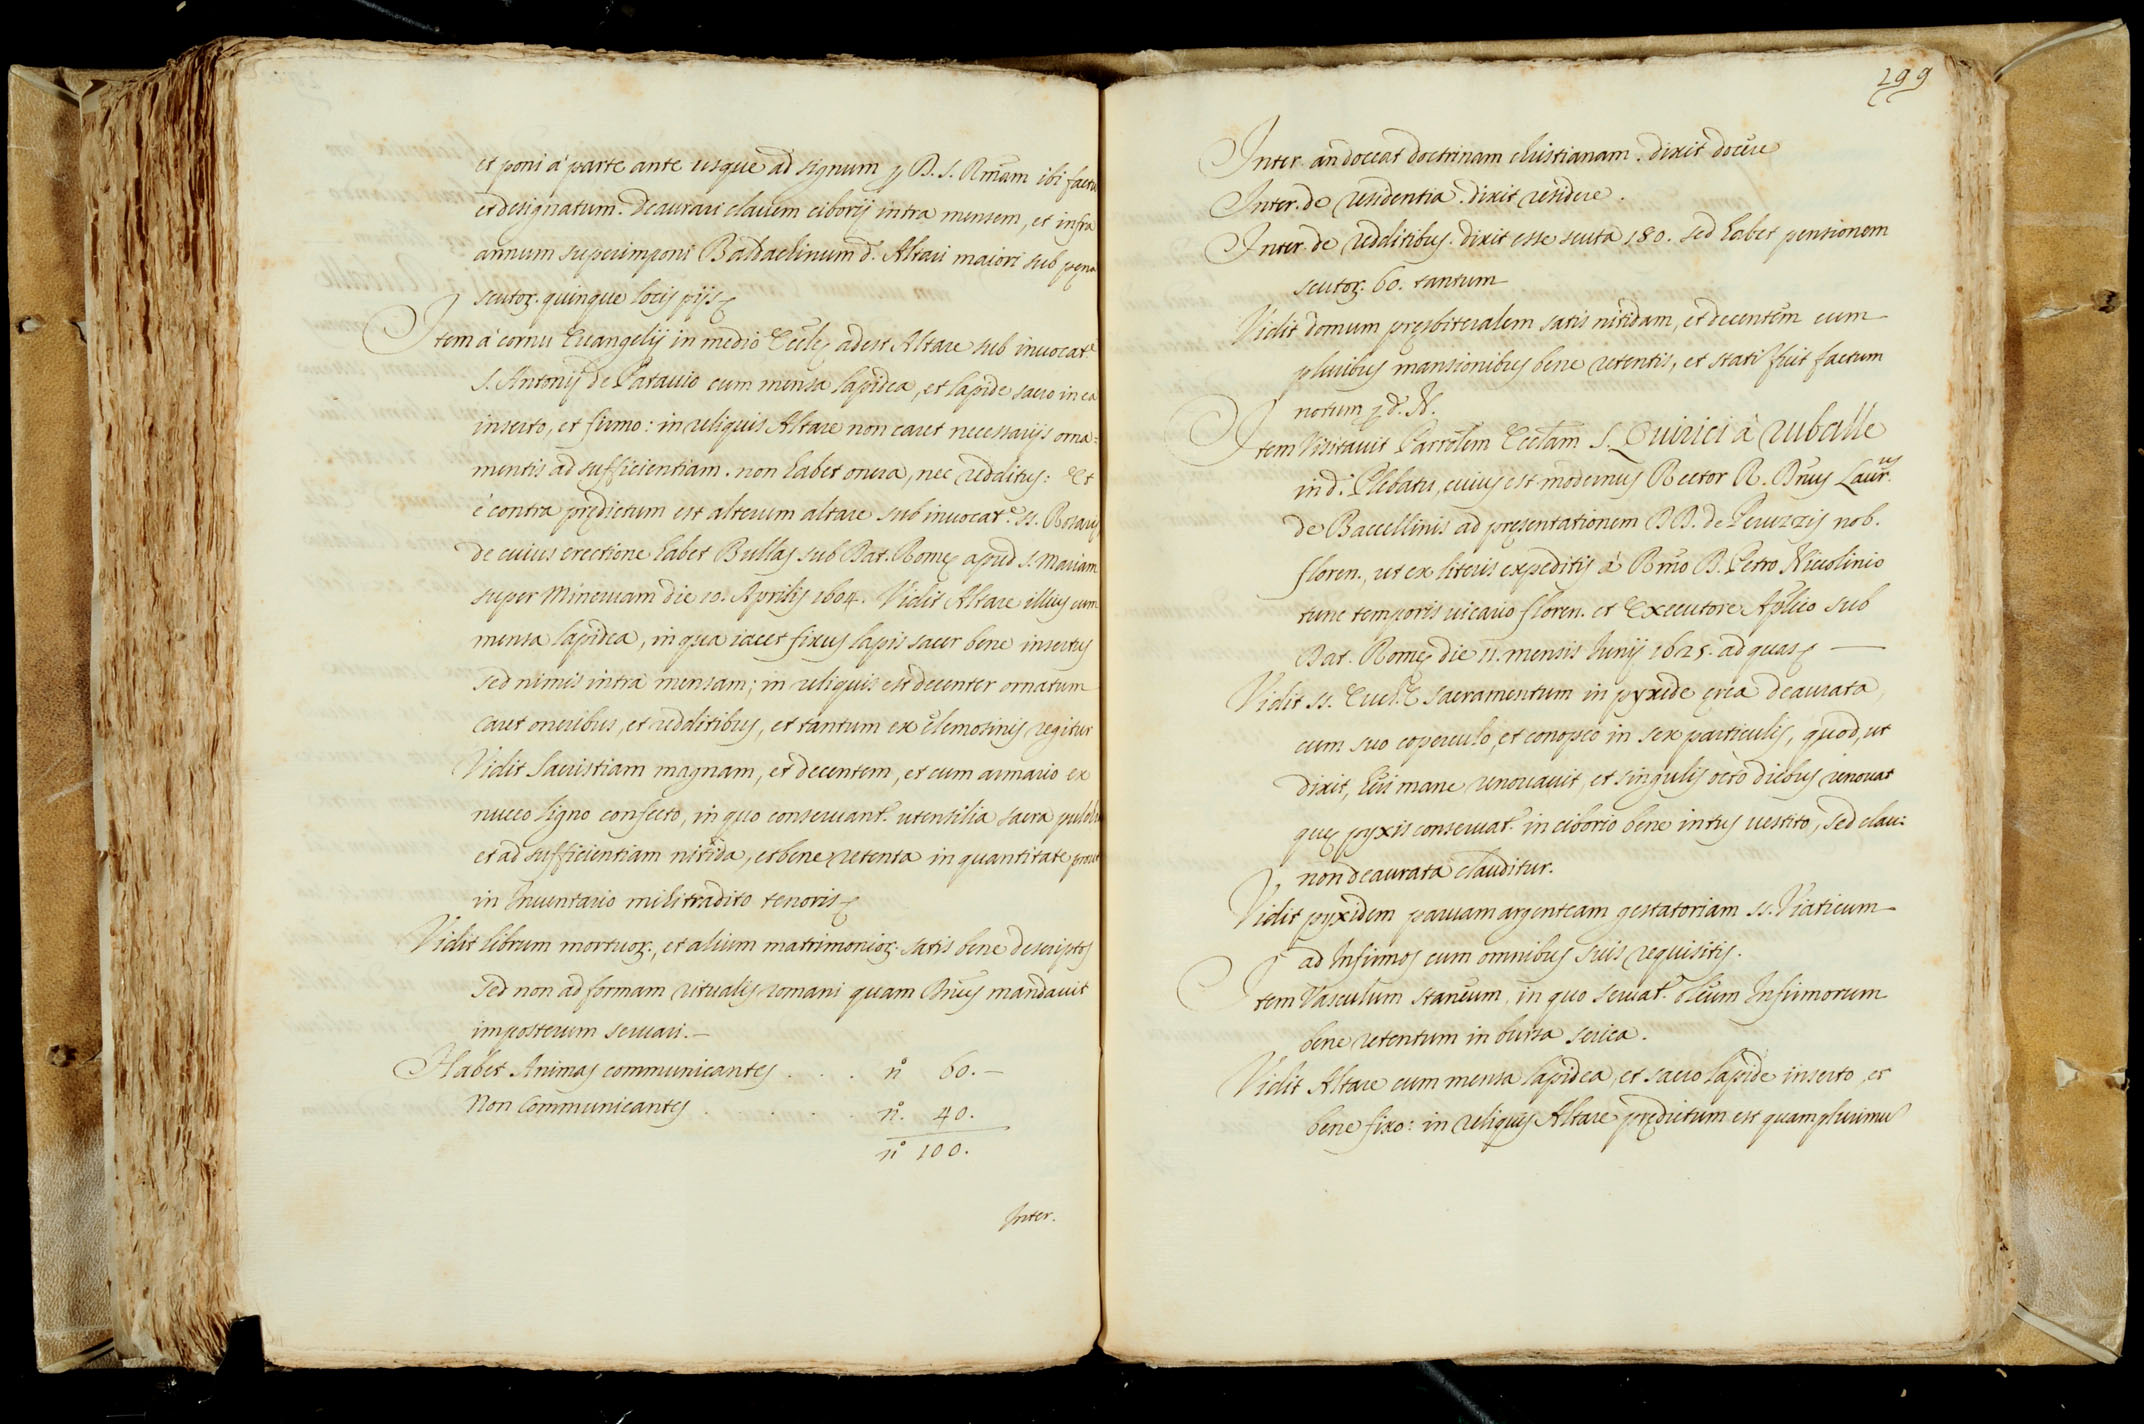 et poni à parte ante usque ad signum p D. S. Rmam ibi factu
et designatum. Deaurari clauem ciborij intra mensem, et infra
annum superimponi Baldachinum d. Altari maiori sub pena
scutor. quinque locis pijs
Item à cornu Euangelij in medio Eccle adest Altare sub inuocat.e
S. Antonij de Patauio cum mensa lapidea, et lapide sacro in ea
inserto, et firmo: in reliquis Altare non caret necessarijs orna=
mentis ad sufficientiam. non habet onera, nec redditus: Et
è contra predictum est alterum altare sub inuocat.e ss. Rosarij
de cuius erectione habet Bullas sub Dat. Rome apud S. Mariam
super Mineruam die 10. Aprilis 1604. Vidit Altare illius cum
mensa lapidea, in qua iacet fixus lapis sacer bene insertus
sed nimis intra mensam; in reliquis est decenter ornatum
caret oneribus, et redditibus, et tantum ex elemosinis regitur
Vidit Sacristiam magnam, et decentem, et cum armario ex
nuceo ligno confecto, in quo conseruant. utensilia sacra
et ad sufficientiam nitida, et bene retenta in quantitate prout
in Inuentario mihi tradito tenoris
Vidit librum mortuor., et alium matrimonior. satis bene descriptos
sed non ad formam ritualis romani quam Dnus mandauit
imposterum seruari.—
Habet Animas communicantes . . . n° 60.—
Non Communicantes . . . . n°. 40.
n° 100.
Inter.
299
Inter. an doceat doctrinam christianam. dixit docere
Inter. de residentia. dixit residere.
Inter. de redditibus. dixit esse scuta 180. sed habet pensionem
scutor. 60. tantum
Vidit domum presbiteralem satis nitidam, et decentem cum
pluribus mansionibus bene retentis, et stati fuit factum
notum p d. N.
Item Visitauit Parrolem Ecclam S. Quirici à ruballe
in d.° Plebatu, cuius est modernus Rector R. Dnus Laur.us
de Baccellinis ad presentationem DD. de Peruzzis nob.
floren., ut ex literis expeditis à Rmo D. Petro Niccolinio
tunc temporis uicario floren. et Executore Aplico sub
Dat. Rome die 11. mensis Junij 1625. ad quas —
Vidit ss. Euch.e sacramentum in pyxide erea deaurata,
cum suo coperculo, et conopeo in sex particulis, quod, ut
dixit, heri mane renouauit, et singulis octo diebus renouat
que pyxis conseruat. in ciborio bene intus uestito, sed claue
non deaurata clauditur.
Vidit pyxidem paruam argenteam gestatoriam ss. Viaticum
ad Infirmos cum omnibus suis requisitis.
Item Vasculum staneum, in quo seruat. oleum Infirmorum
bene retentum in bursa serica.
Vidit Altare cum mensa lapidea, et sacro lapide inserto, et
bene fixo: in reliquis Altare predictum est quamplurimis